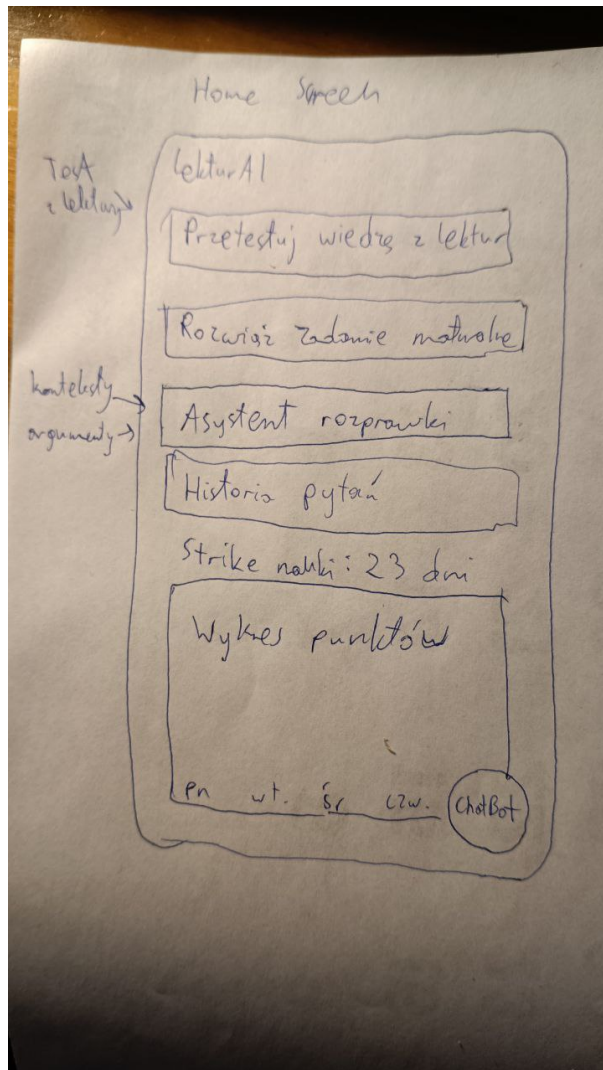 Home Screen
LekturAI
Test
z lektury
Przetestuj wiedzę z lektur
Rozwiąż Zadanie maturalne
konteksty
argumenty
Asystent rozprawki
Historia pytań
Strike nauki: 23 dni
Wykres punktów
Pn wt. śr czw. ChatBot